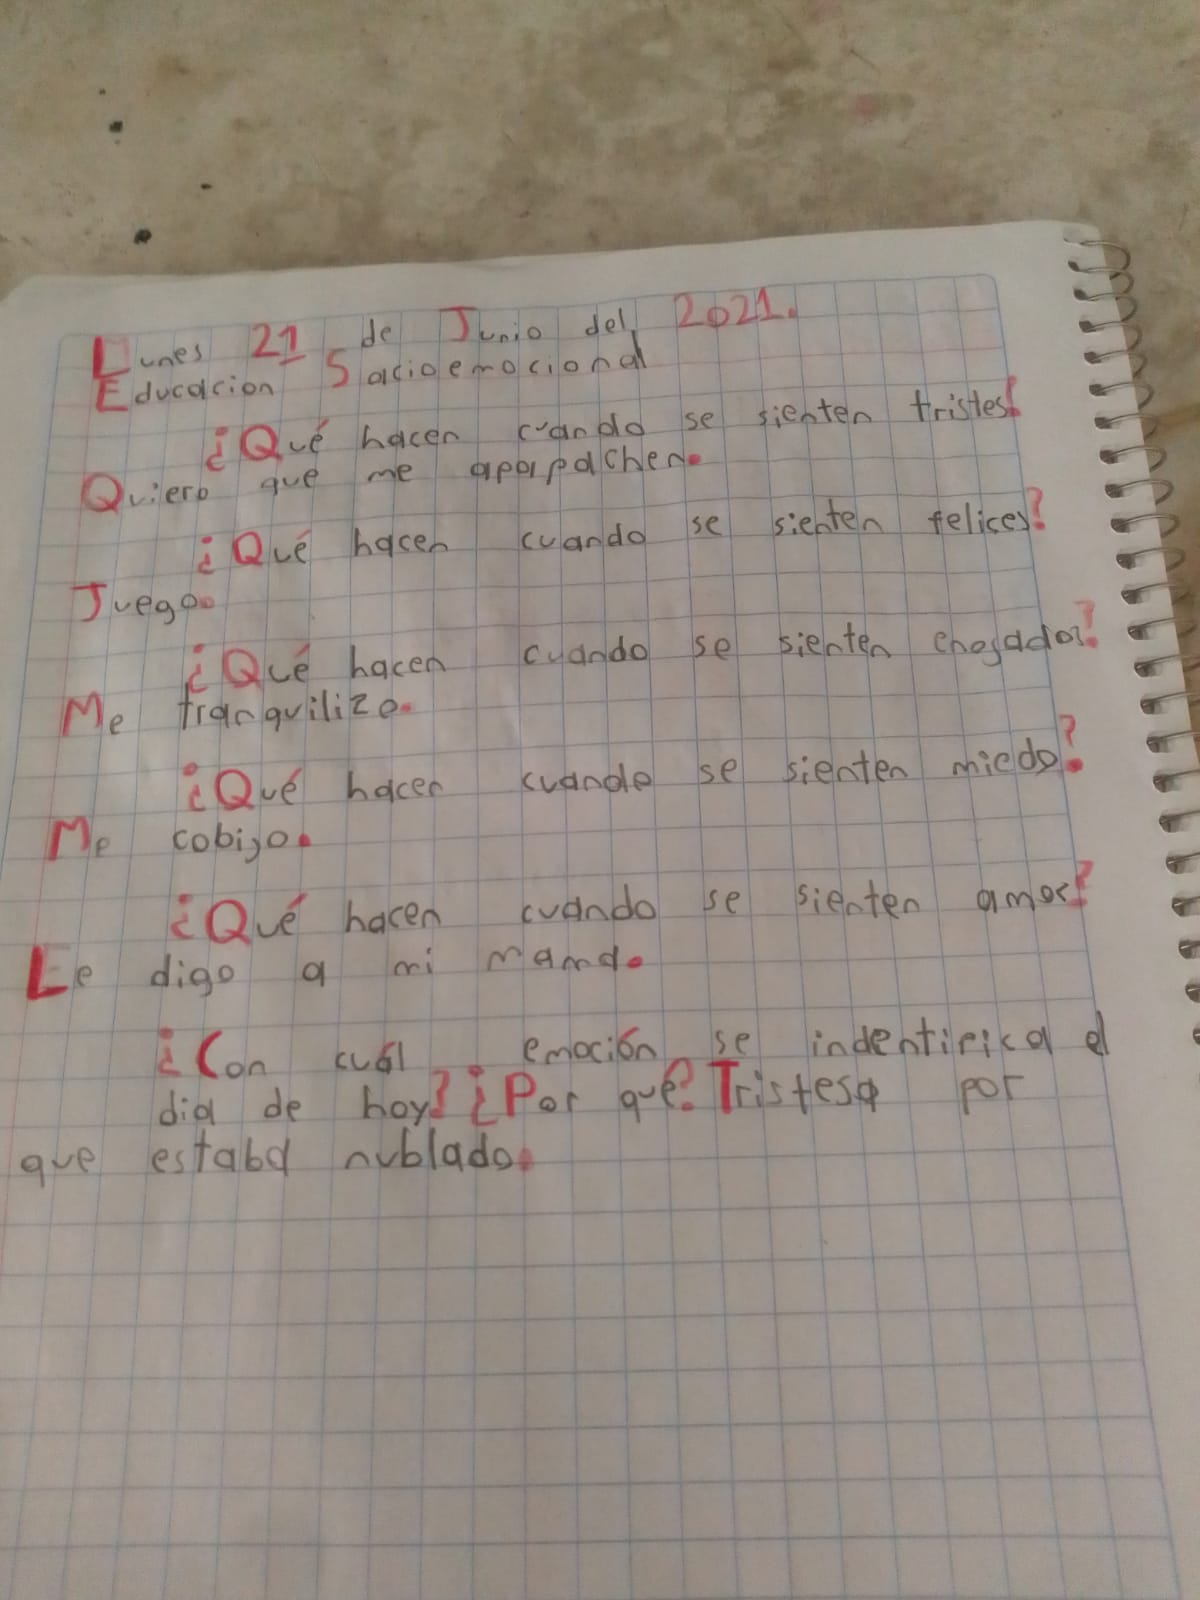 Lunes 21 de Junio del 2021.
Educacion Sacioemocional
¿Qué hacen cuando se sienten tristes?
Quiero que me apapachen.
¿Qué hacen cuando se sienten felices?
Juego.
¿Qué hacen cuando se sienten enojados?
Me tranquilizo.
¿Qué hacen cuando se sienten miedo?
Me cobijo.
¿Qué hacen cuando se sienten amor?
Le digo a mi mamá.
¿Con cuál emoción se indentifica el
dia de hoy? ¿Por qué? Tristesa por
que estaba nublado.